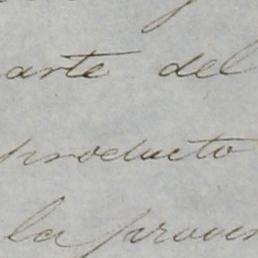 arte del
producto
la provin